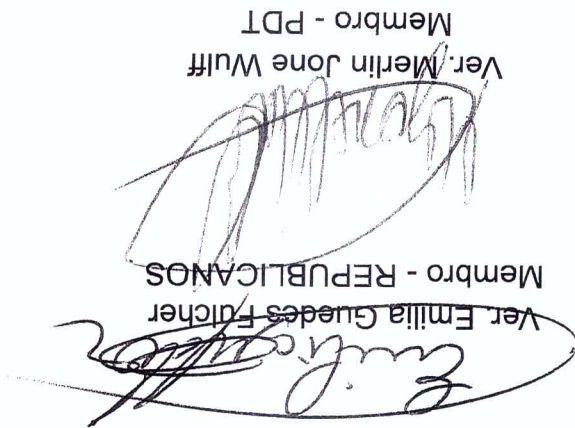 Emilia Guedes
Ver. Emilia Guedes Fulcher
Membro - REPUBLICANOS
Ver. Merlin Jone Wulff
Membro - PDT